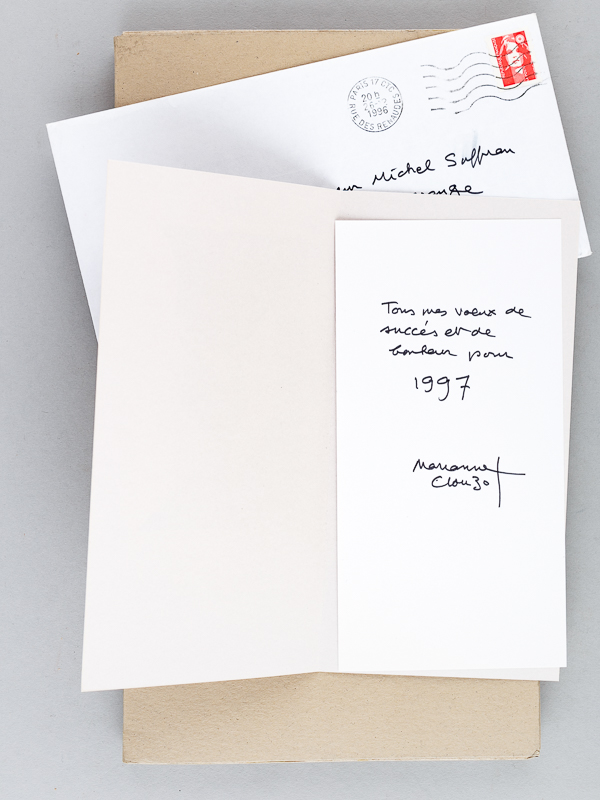 PARIS 17 CTC S
20 H
1996
RUE DES RENAUDES
Michel Suffran
Tous mes voeux de
succés et de
bonheur pour
1997
Marianne
Clouzot